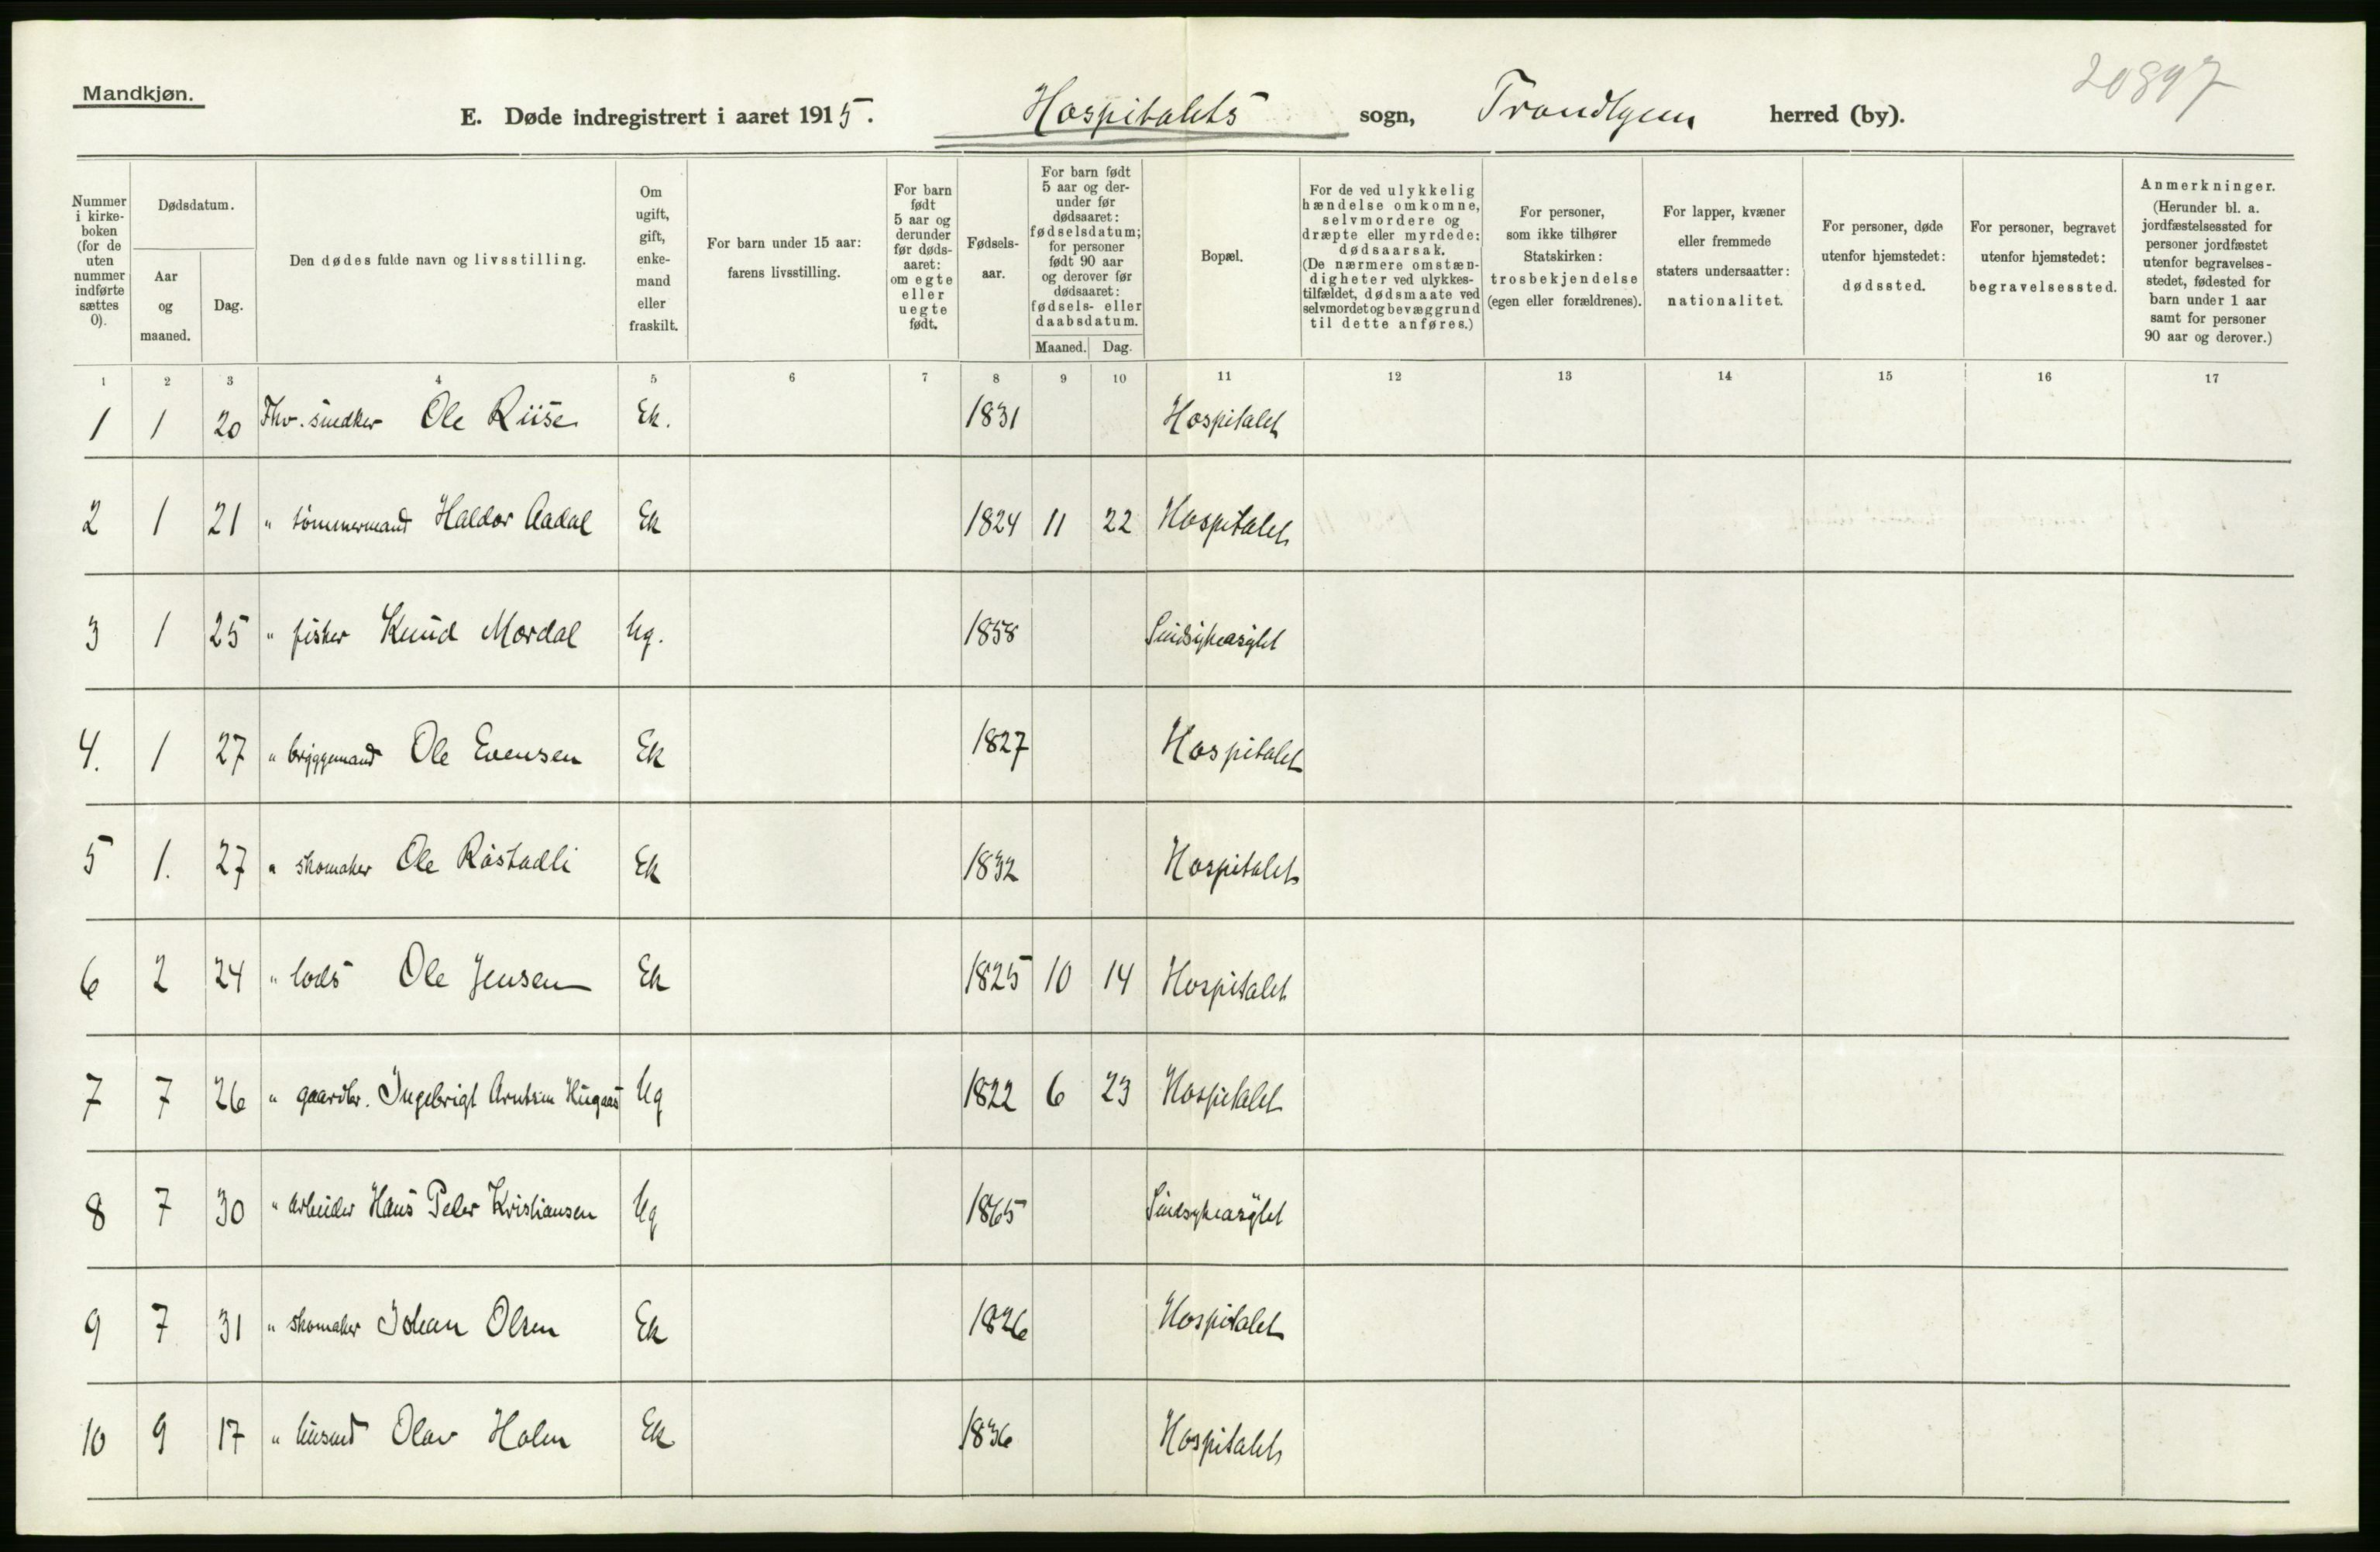 Mandkjøn.
20897
E. Døde indregistrert i aaret 1915. Hospitalets sogn, Trondhjem herred (by).
Nummer i kirke-boken (for de uten nummer indførte sættes 0).
Dødsdatum.
Aar og maaned.
Dag.
Den dødes fulde navn og livsstilling.
Om ugift, gift, enke-mand eller fraskilt.
For barn under 15 aar: farens livsstilling.
For barn født 5 aar og derunder før døds-aaret: om egte eller uegte født.
Fødsels-aar.
For barn født 5 aar og der-under før dødsaaret: fødselsdatum; for personer født 90 aar og derover før dødsaaret: fødsels- eller daabsdatum.
Maaned. Dag.
Bopæl.
For de ved ulykkelig hændelse omkomne, selvmordere og dræpte eller myrdede: dødsaarsak. (De nærmere omstæn-digheter ved ulykkes-tilfældet, dødsmaate ved selvmordet og bevæggrund til dette anføres.)
For personer, som ikke tilhører Statskirken: trosbekjendelse (egen eller forældrenes).
For lapper, kvæner eller fremmede staters undersaatter: nationalitet.
For personer, døde utenfor hjemstedet: dødssted.
For personer, begravet utenfor hjemstedet: begravelsessted.
Anmerkninger. (Herunder bl. a. jordfæstelsessted for personer jordfæstet utenfor begravelses-stedet, fødested for barn under 1 aar samt for personer 90 aar og derover.)
1 2 3 4 5 6 7 8 9 10 11 12 13 14 15 16 17
1 1 20 Fhv. snedker Ole Riise Ek. 1831 Hospitalet
2 1 21 " tømmermand Haldor Aadal Ek 1824 11 22 Hospitalet
3 1 25 " fisker Knud Mordal Ug. 1858 Sindsykeasylet
4. 1 27 " bryggemand Ole Evensen Ek 1827 Hospitalet
5 1. 27 " skomaker Ole Råstadli Ek 1832 Hospitalet
6 2 24 " lods Ole Jensen Ek 1825 10 14 Hospitalet
7 7 26 " gaardbr. Ingebrigt Arntsen Hugaas Ug 1822 6 23 Hospitalet
8 7 30 " arbeider Hans Peder Kristiansen Ug 1865 Sindsykeasylet
9 7 31 " skomaker Johan Olsen Ek 1826 Hospitalet
10 9 17 " husmd Olav Holm Ek 1836 Hospitalet